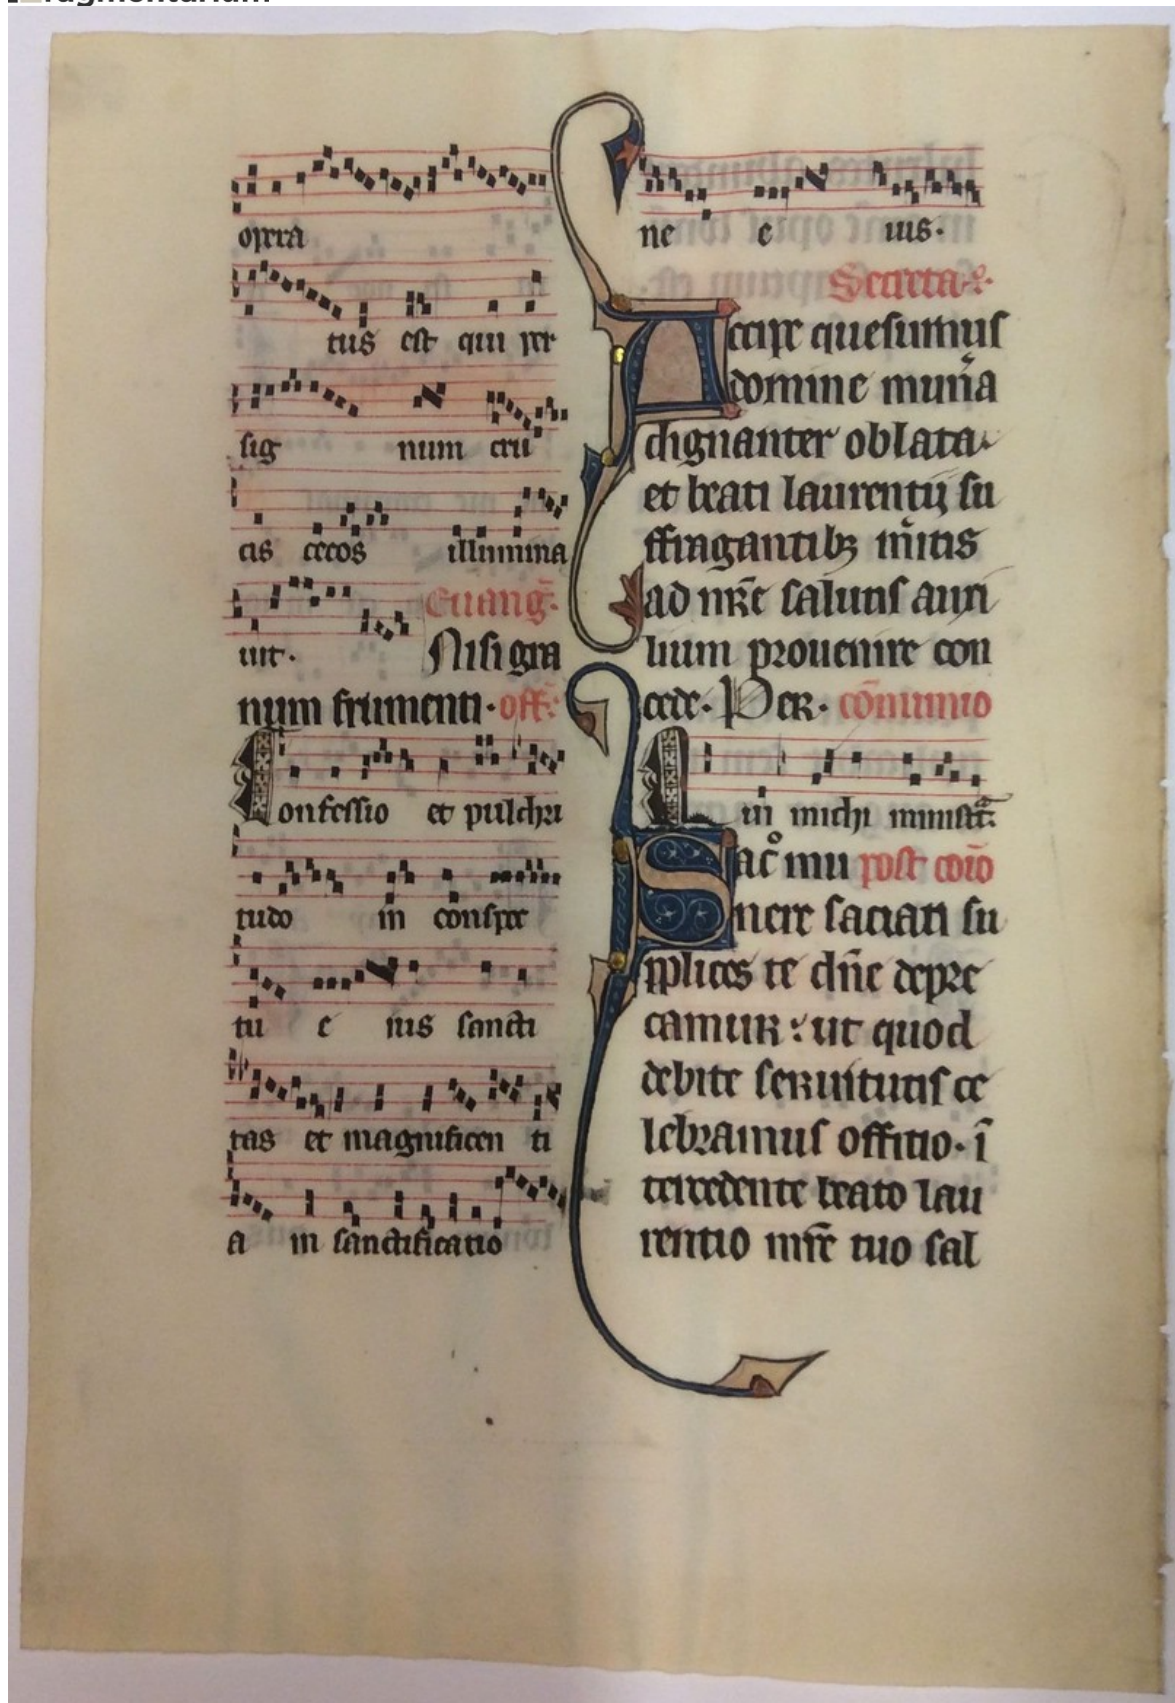 opera
tus est qui per
sig num cru
cis cecos illumina
uit. Euang̅.
Nisi gra
num frumenti. off̅.
Confessio et pulchri
tudo in conspec
tu e ius sancti
tas et magnificen ti
a in sanctificatio
ne e ius.
Secreta.
Accipe quesumus
domine munͣa
dignanter oblata.
et beati laurentij su
ffragantibꝫ mͥitis
ad nr̅e salutis auxi
lium prouenire con
cede. Per. co̅munio
Qui michi ministᷓt
Sac̊ mu post co̅io̅
nere saciati su
pplices te dn̅e depre
camur: ut quod
debite seruitutis ce
lebramus offitio. i̅
tercedente beato lau
rentio mr̅e tuo sal